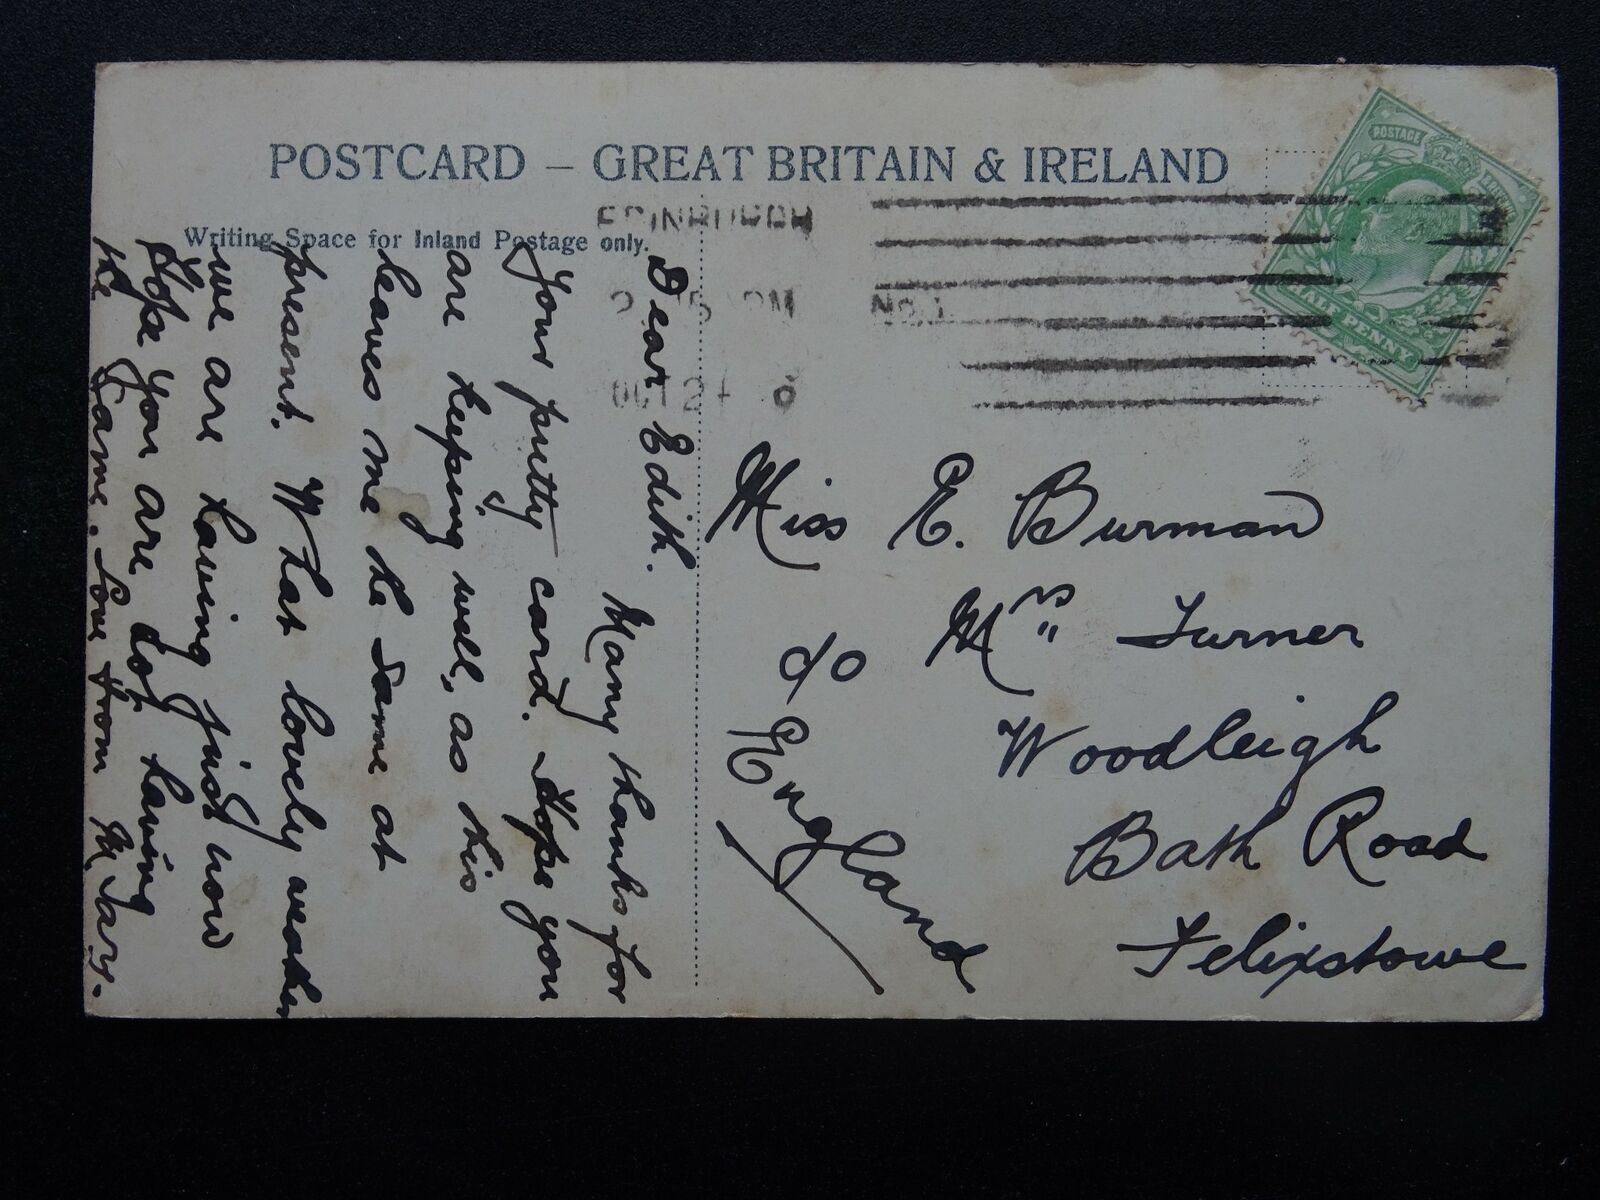 POSTCARD – GREAT BRITAIN & IRELAND
Writing Space for Inland Postage only.
EDINBURGH
PM
No. 1
OCT 24
POSTAGE
HALF PENNY
Dear Edith.
Many thanks for
your pretty card. Hope you
are keeping well, as this
leaves me the same at
present. What lovely weather
we are having just now
Hope you are having
the same. Love from M. Jary.
Miss E. Burman
c/o Mrs Turner
Woodleigh
Bath Road
Felixstowe
England